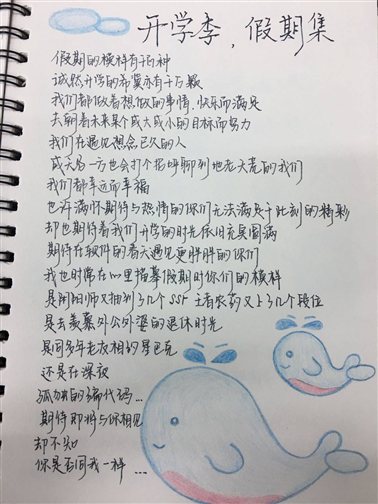 开学季，假期集
假期的模样有千万种
诚然开学的希冀亦有千万颗
我们都做着想做的事情，快乐而满足
去朝着未来某个或大或小的目标而努力
我们在遇见想念已久的人
或天各一方也会打个招呼聊到地老天荒的我们
我们都幸运而幸福
也许满怀期待与热情的你们无法满足于此刻的精彩
却也期待着我们开学的时光依旧充具圆满
期待在软件的春天遇见更胖胖的你们
我也时常在心里描摹假期时你们的模样
是阴阳师又抽到了几个SSR 王者农药又上了几个段位
是去羡慕外公外婆的退休时光
是同多年老友相约星巴克
还是在深夜
孤独的编代码...
期待即将与你相见
却不知
你是否同我一样...